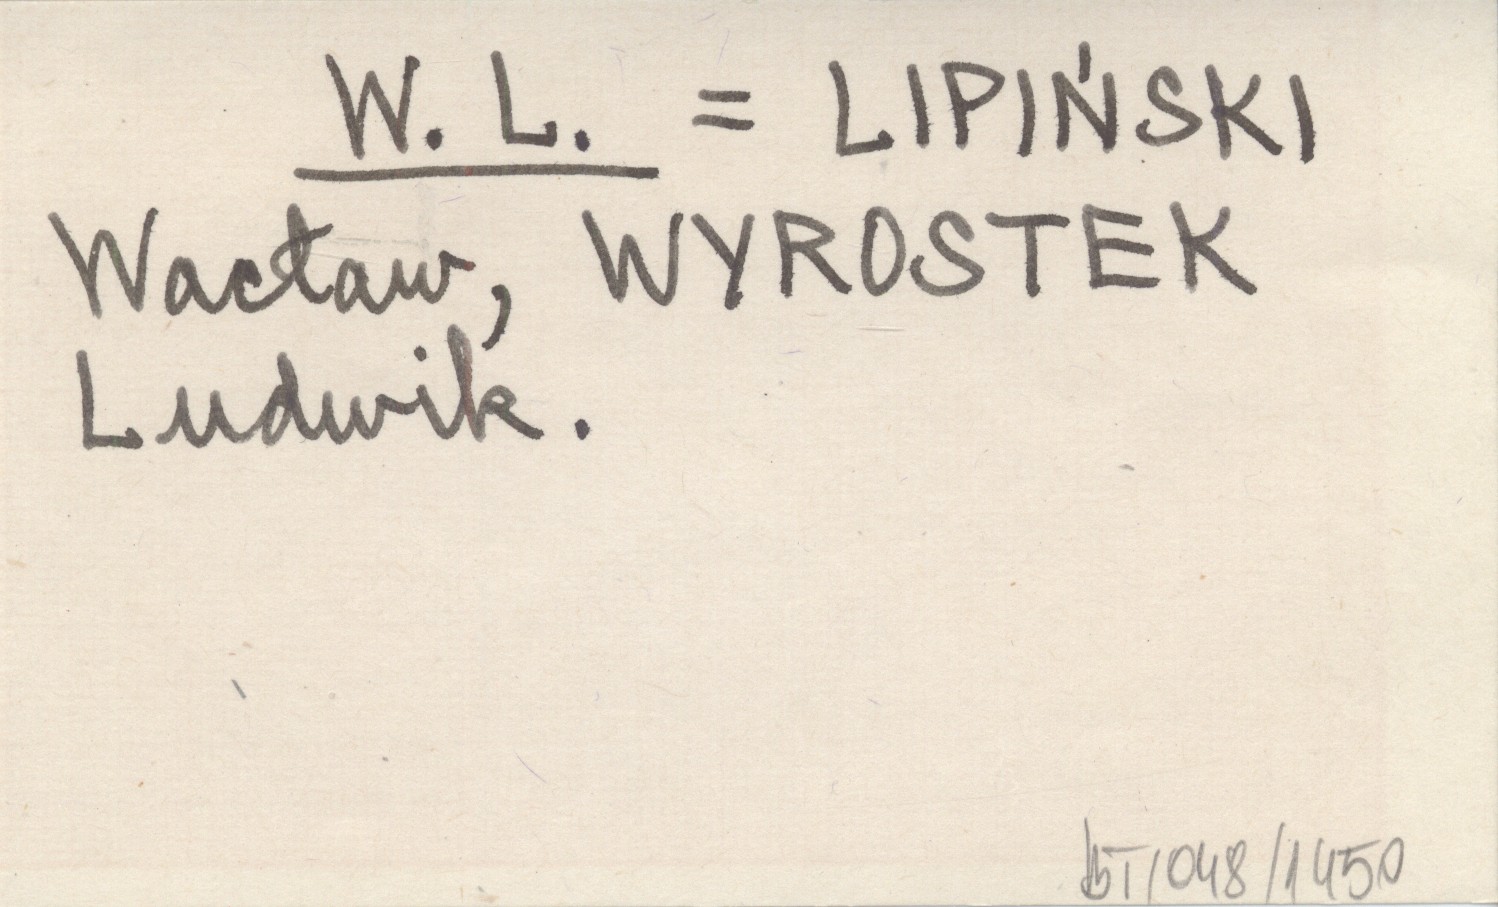 W. L. = LIPIŃSKI
Wacław, WYROSTEK
Ludwik.
BT/048/1450